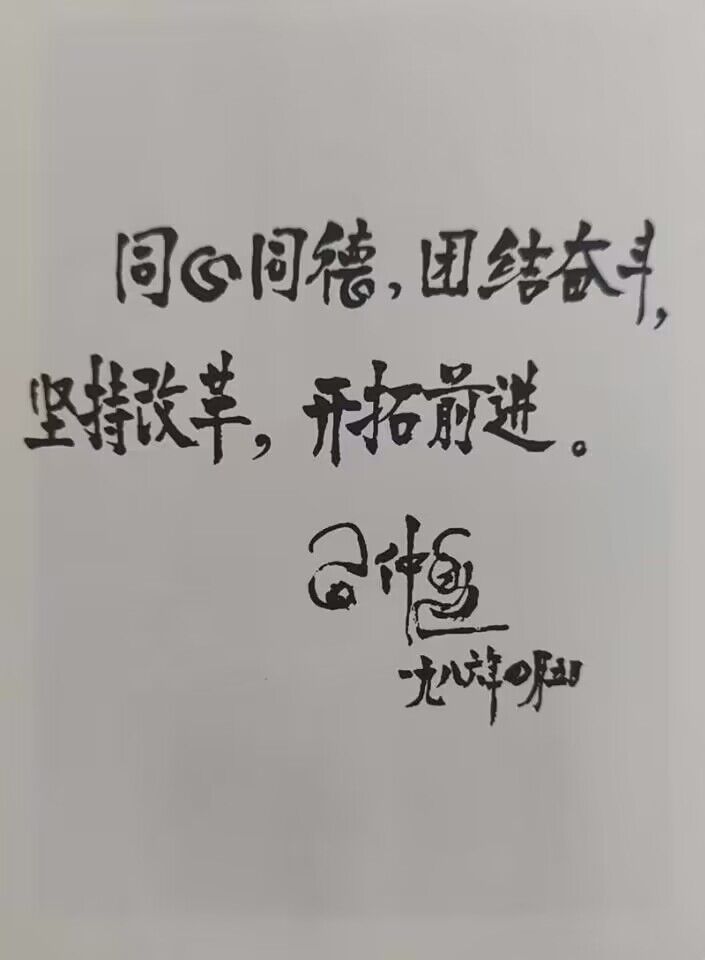 同心同德，团结奋斗，
坚持改革，开拓前进。
仲
一九八六年月五日